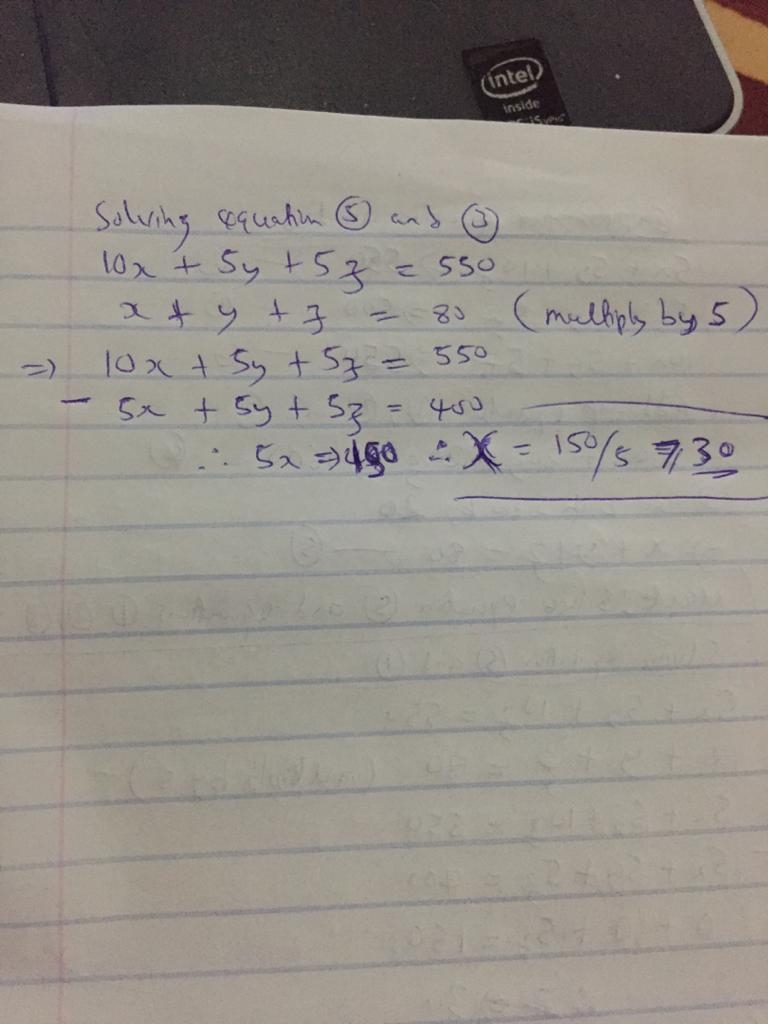 intel
inside
Solving equation ⑤ and ③
10x + 5y + 5z = 550
x + y + z = 80 (multiply by 5)
=> 10x + 5y + 5z = 550
- 5x + 5y + 5z = 400
∴ 5x => ∴ X = 150/5 => 30